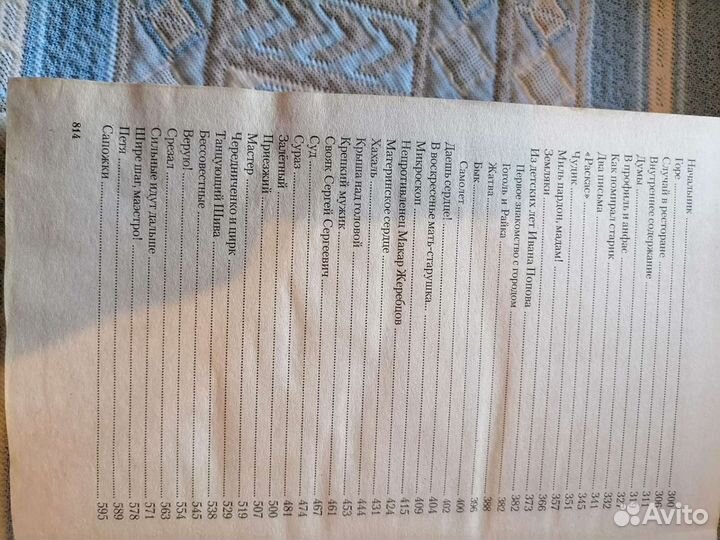 Начальник ... 300
Горе ... 306
Случай в ресторане ... 311
Внутреннее содержание
Думы ... 327
В профиль и анфас ... 332
Как помирал старик ... 341
Два письма ... 345
«Раскас» ... 351
Чудик ... 357
Миль пардон, мадам! ... 366
Земляки ... 373
Из детских лет Ивана Попова ... 382
Первое знакомство с городом ... 382
Гоголь и Райка ... 388
Жатва ... 396
Бык ... 400
Самолет ... 402
Даешь сердце! ... 404
В воскресенье мать-старушка... ... 409
Микроскоп ... 415
Непротивленец Макар Жеребцов ... 424
Материнское сердце ... 431
Хахаль ... 444
Крыша над головой ... 453
Крепкий мужик ... 461
Свояк Сергей Сергеевич ... 467
Суд ... 474
Сураз ... 481
Залётный ... 500
Приезжий ... 507
Мастер ... 519
Чередниченко и цирк ... 529
Танцующий Шива ... 538
Бессовестные ... 545
Верую! ... 554
Срезал ... 563
Сильные идут дальше ... 571
Шире шаг, маэстро! ... 578
Петя ... 589
Сапожки ... 595
814
Avito